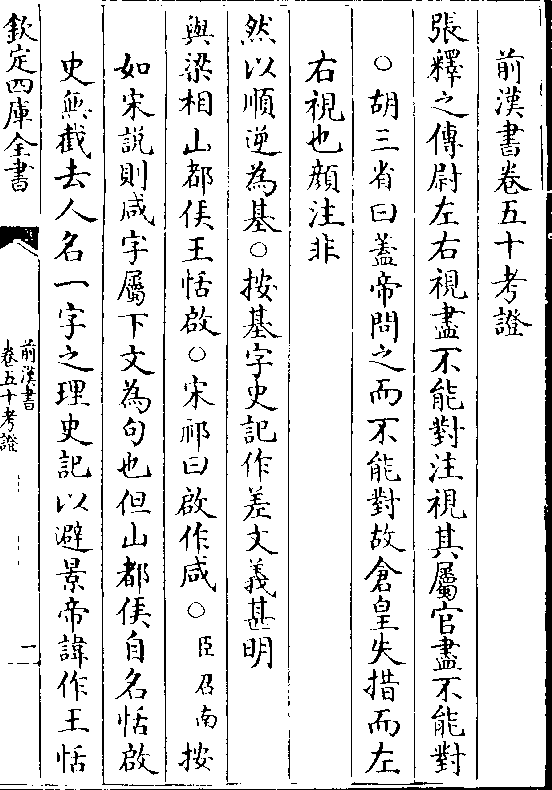 前漢書卷五十考證
張釋之傳尉左右視盡不能對注視其屬官盡不能對
○胡三省曰蓋帝問之而不能對故倉皇失措而左
右視也顔注非
然以順逆為基○按基字史記作差文義甚明
與梁相山都侯王恬啟○宋祁曰啟作咸○臣召南按
如宋說則咸字屬下文為句也但山都侯自名恬啟
史無截去人名一字之理史記以避景帝諱作王恬
欽定四庫全書
前漢書
卷五十考證
二